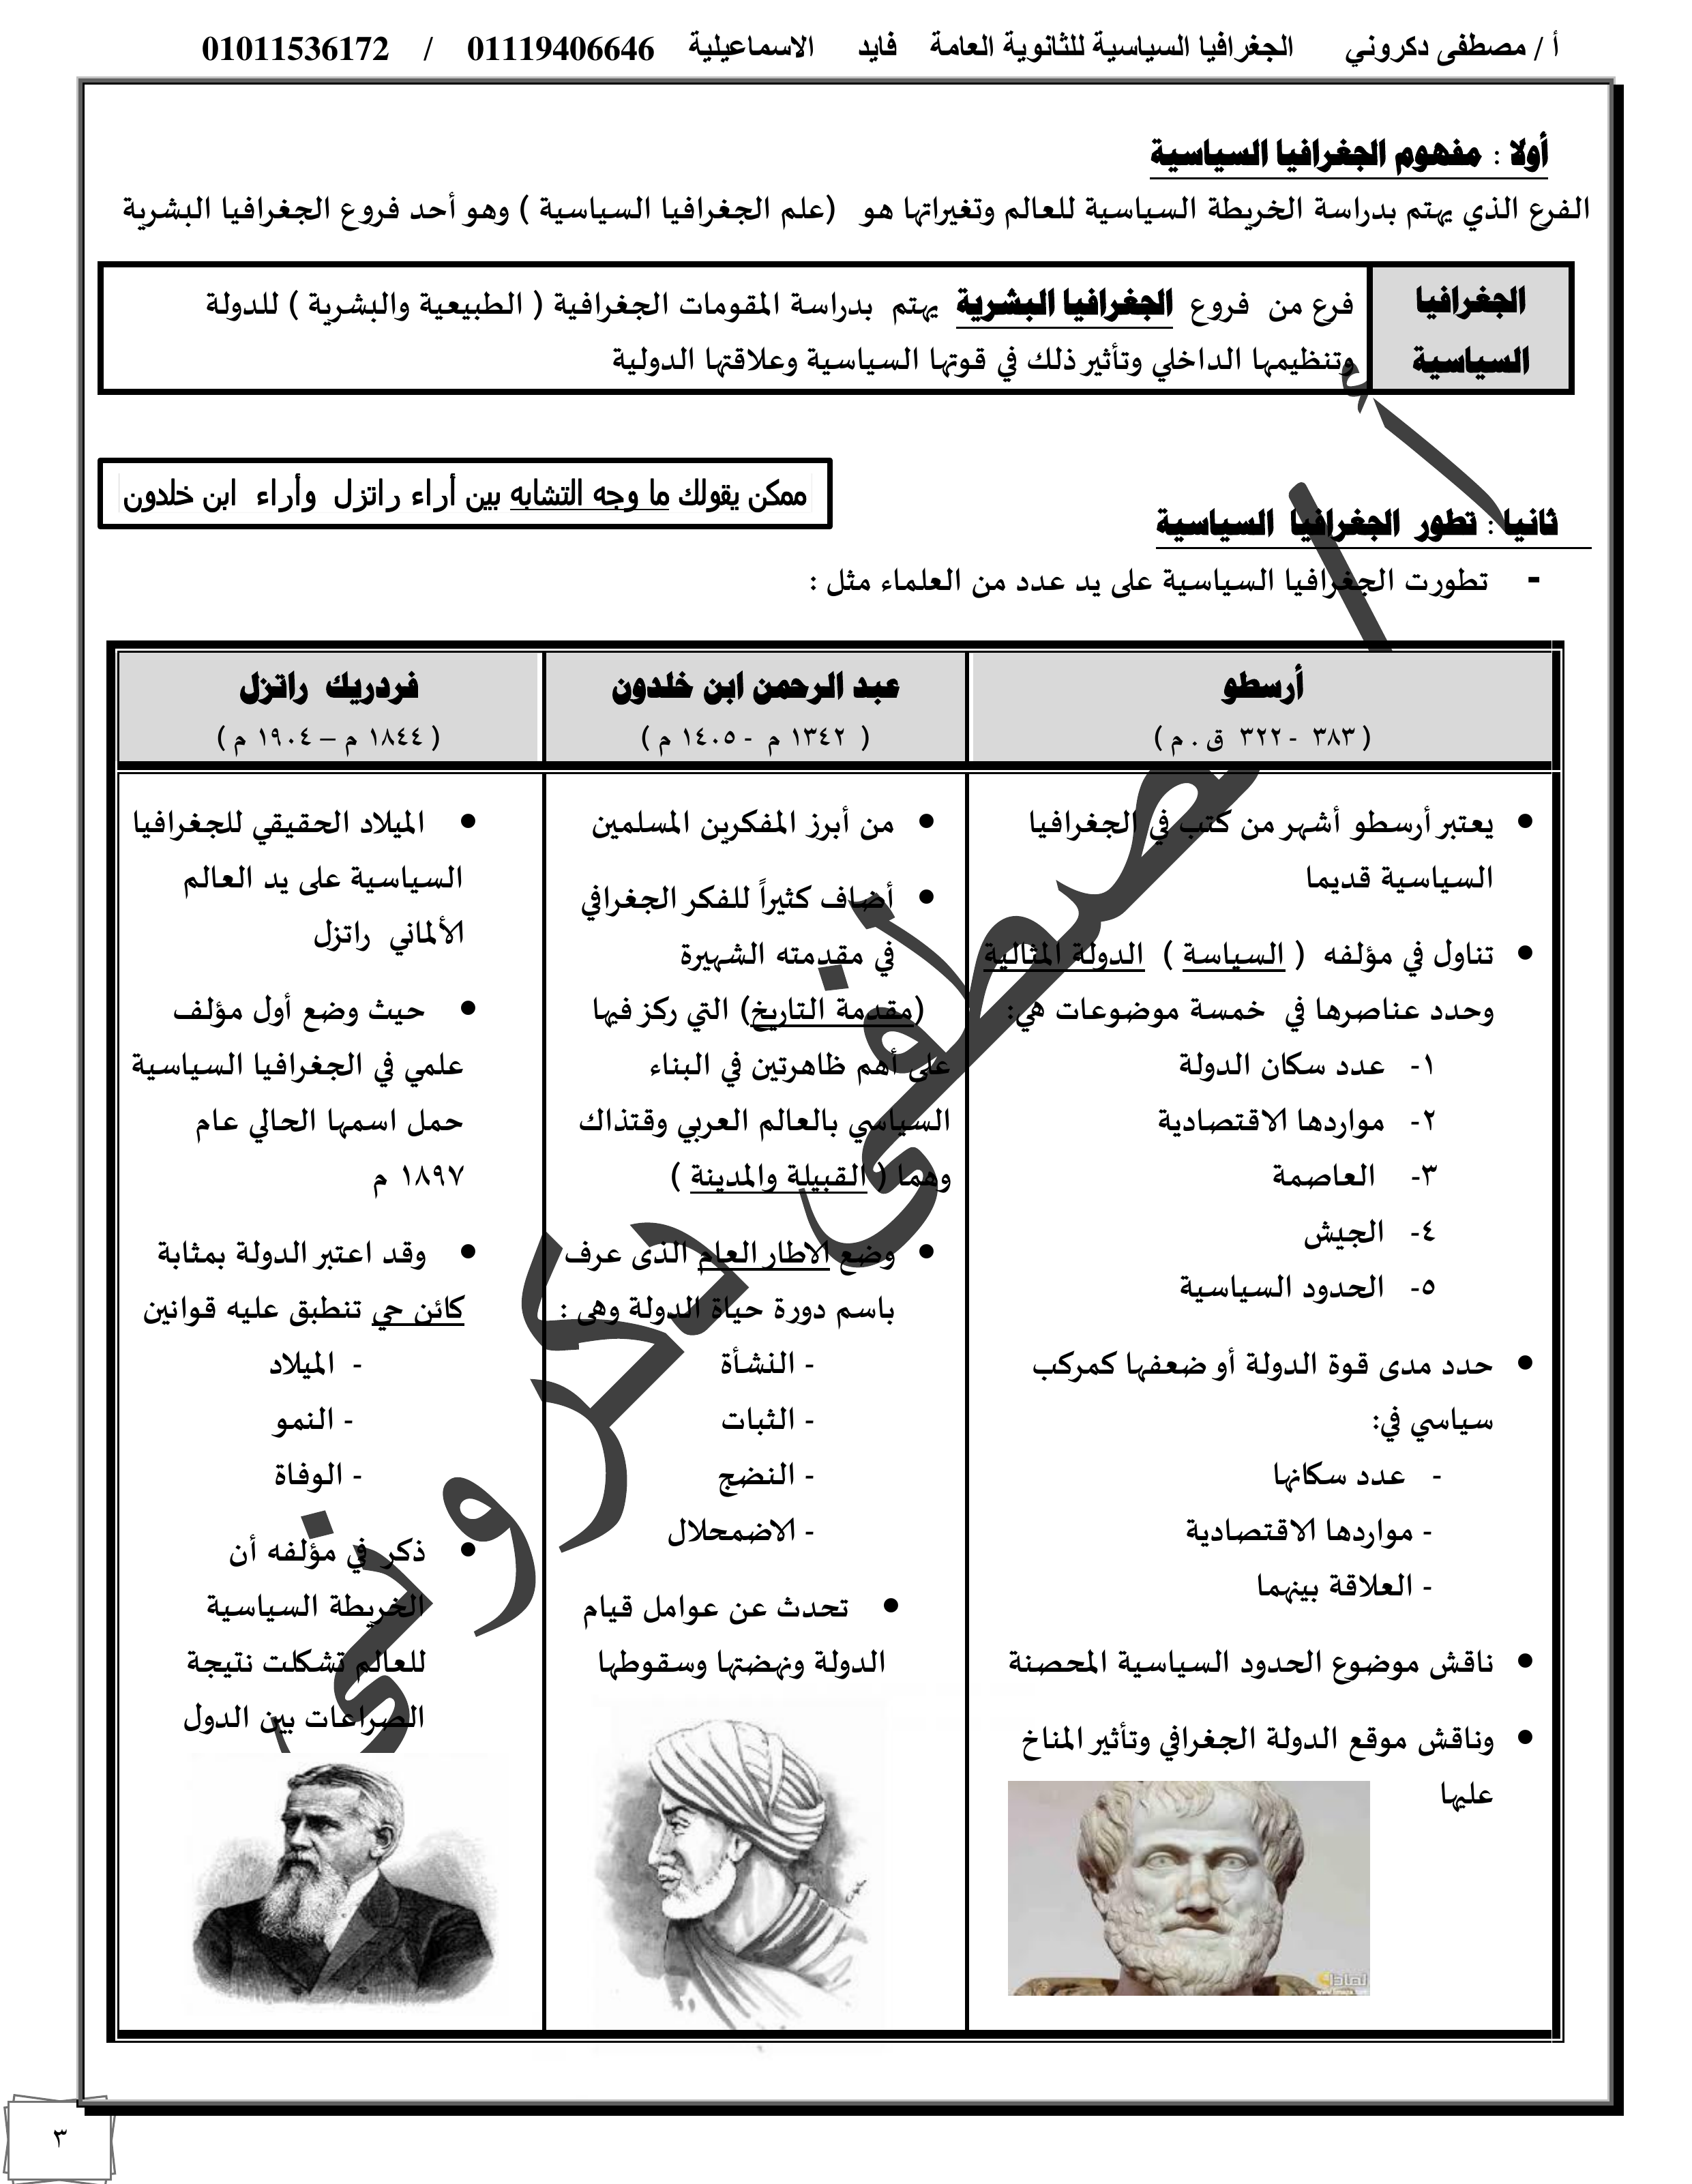 أ / مصطفى دكروني الجغرافيا السياسية للثانوية العامة فايد الاسماعيلية 01119406646 / 01011536172
أولا : مفهوم الجغرافيا السياسية
الفرع الذي يهتم بدراسة الخريطة السياسية للعالم وتغيراتها هو (علم الجغرافيا السياسية ) وهو أحد فروع الجغرافيا البشرية
الجغرافيا
السياسية
فرع من فروع الجغرافيا البشرية يهتم بدراسة المقومات الجغرافية ( الطبيعية والبشرية ) للدولة
وتنظيمها الداخلي وتأثير ذلك في قوتها السياسية وعلاقتها الدولية
ممكن يقولك ما وجه التشابه بين أراء راتزل وأراء ابن خلدون
ثانيا : تطور الجغرافيا السياسية
- تطورت الجغرافيا السياسية على يد عدد من العلماء مثل :
أرسطو
( ٣٨٣ - ٣٢٢ ق . م )
• يعتبر أرسطو أشهر من كتب في الجغرافيا
السياسية قديما
• تناول في مؤلفه ( السياسة ) الدولة المثالية
وحدد عناصرها في خمسة موضوعات هي:
١- عدد سكان الدولة
٢- مواردها الاقتصادية
٣- العاصمة
٤- الجيش
٥- الحدود السياسية
• حدد مدى قوة الدولة أو ضعفها كمركب
سياسي في:
- عدد سكانها
- مواردها الاقتصادية
- العلاقة بينهما
• ناقش موضوع الحدود السياسية المحصنة
• وناقش موقع الدولة الجغرافي وتأثير المناخ
عليها
عبد الرحمن ابن خلدون
( ١٣٤٢ م - ١٤٠٥ م )
• من أبرز المفكرين المسلمين
• أضاف كثيراً للفكر الجغرافي
في مقدمته الشهيرة
(مقدمة التاريخ) التي ركز فيها
على أهم ظاهرتين في البناء
السياسي بالعالم العربي وقتذاك
وهما ( القبيلة والمدينة )
• وضع الاطار العام الذى عرف
باسم دورة حياة الدولة وهى :
- النشأة
- الثبات
- النضج
- الاضمحلال
• تحدث عن عوامل قيام
الدولة ونهضتها وسقوطها
فردريك راتزل
( ١٨٤٤ م – ١٩٠٤ م )
• الميلاد الحقيقي للجغرافيا
السياسية على يد العالم
الألماني راتزل
• حيث وضع أول مؤلف
علمي في الجغرافيا السياسية
حمل اسمها الحالي عام
١٨٩٧ م
• وقد اعتبر الدولة بمثابة
كائن حي تنطبق عليه قوانين
- الميلاد
- النمو
- الوفاة
• ذكر في مؤلفه أن
الخريطة السياسية
للعالم تشكلت نتيجة
الصراعات بين الدول
أ / مصطفى دكروني
لماذا؟
٣